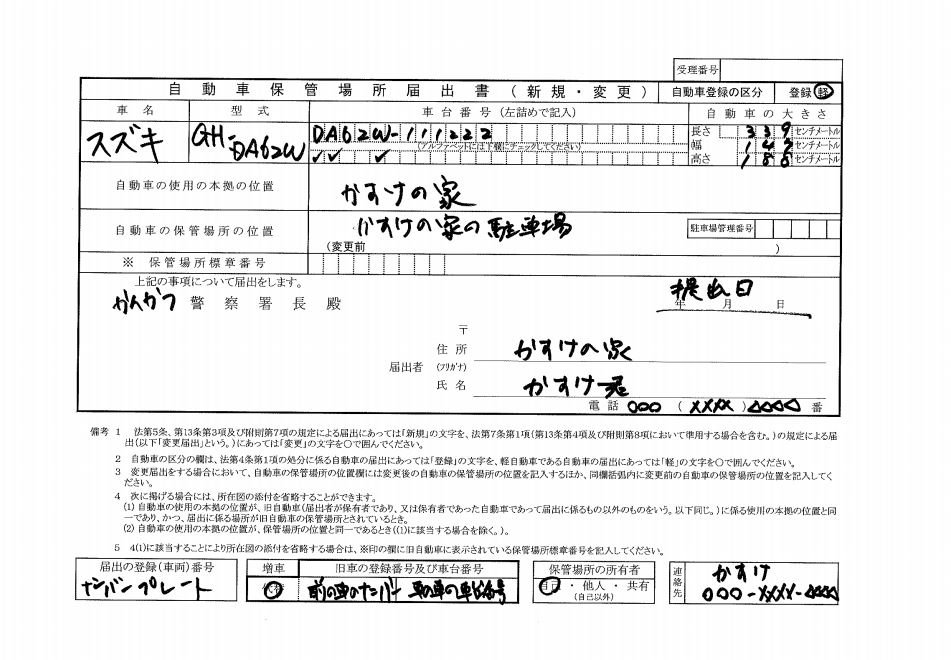 受理番号
自動車保管場所届出書(新規・変更) 自動車登録の区分 登録 軽
車名 型式 車台番号(左詰めで記入) 自動車の大きさ
スズキ GH-DA62W DA62W-111222 長さ 339 センチメートル
(アルファベットには下欄にチェックしてください) 幅 147 センチメートル
高さ 188 センチメートル
自動車の使用の本拠の位置 かすけの家
自動車の保管場所の位置 かすけの家の駐車場 駐車場管理番号
(変更前 )
※ 保管場所標章番号
上記の事項について届出をします。 提出日
かんかつ 警察署長 殿 年 月 日
〒
住所 かすけの家
届出者 (フリガナ)
氏名 かすけ君
電話 000 (XXXX) △△△△ 番
備考 1 法第5条、第13条第3項及び附則第7項の規定による届出にあっては「新規」の文字を、法第7条第1項(第13条第4項及び附則第8項において準用する場合を含む。)の規定による届
出(以下「変更届出」という。)にあっては「変更」の文字を○で囲んでください。
2 自動車の区分の欄は、法第4条第1項の処分に係る自動車の届出にあっては「登録」の文字を、軽自動車である自動車の届出にあっては「軽」の文字を○で囲んでください。
3 変更届出をする場合において、自動車の保管場所の位置欄には変更後の自動車の保管場所の位置を記入するほか、同欄括弧内に変更前の自動車の保管場所の位置を記入してく
ださい。
4 次に掲げる場合には、所在図の添付を省略することができます。
(1) 自動車の使用の本拠の位置が、旧自動車(届出者が保有者であり、又は保有者であった自動車であって届出に係るもの以外のものをいう。以下同じ。)に係る使用の本拠の位置と同
一であり、かつ、届出に係る場所が旧自動車の保管場所とされているとき。
(2) 自動車の使用の本拠の位置が、保管場所の位置と同一であるとき((1)に該当する場合を除く。)。
5 4(1)に該当することにより所在図の添付を省略する場合は、※印の欄に旧自動車に表示されている保管場所標章番号を記入してください。
届出の登録(車両)番号 増車 旧車の登録番号及び車台番号 保管場所の所有者 連絡先 かすけ
ナンバープレート 代替 前の車のナンバー 自己・他人・共有 000-XXXX-△△△△
(自己以外)